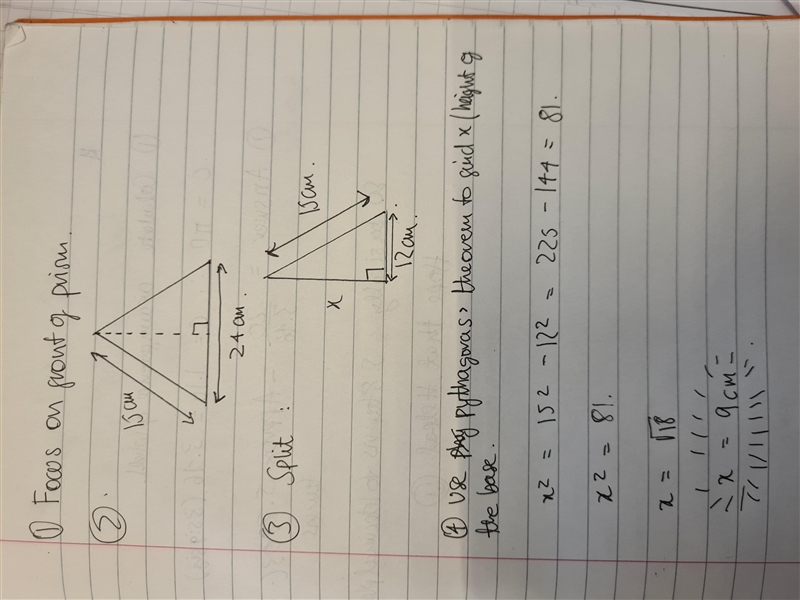 ① Focus on front of prism.
②.
15cm
24cm.
③ Split :
15cm.
x
12cm.
④ Use pythagoras' theorem to find x (height of
the base.
x² = 15² - 12² = 225 - 144 = 81.
x² = 81.
x = √18
x = 9cm